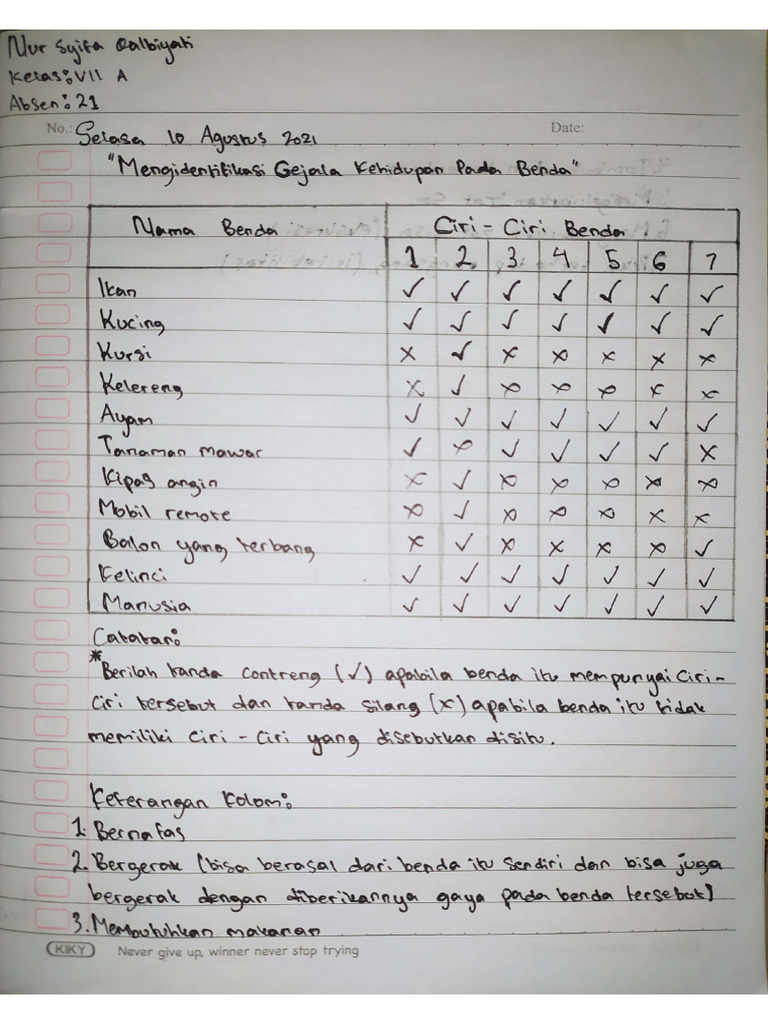 Nur Syifa Qalbiyati
Kelas: VII A
Absen: 21
No.: Selasa 10 Agustus 2021 Date:
"Mengidentifikasi Gejala Kehidupan Pada Benda"
Nama Benda Ciri - Ciri Benda
1 2 3 4 5 6 7
Ikan ✓ ✓ ✓ ✓ ✓ ✓ ✓
Kucing ✓ ✓ ✓ ✓ ✓ ✓ ✓
Kursi × ✓ × × × × ×
Kelereng × ✓ × × × × ×
Ayam ✓ ✓ ✓ ✓ ✓ ✓ ✓
Tanaman mawar ✓ × ✓ ✓ ✓ ✓ ×
Kipas angin × ✓ × × × × ×
Mobil remote × ✓ × × × × ×
Balon yang terbang × ✓ × × × × ✓
Kelinci ✓ ✓ ✓ ✓ ✓ ✓ ✓
Manusia ✓ ✓ ✓ ✓ ✓ ✓ ✓
Catatan:
* Berilah tanda contreng (✓) apabila benda itu mempunyai ciri-
ciri tersebut dan tanda silang (×) apabila benda itu tidak
memiliki ciri - ciri yang disebutkan disitu.
Keterangan Kolom:
1. Bernafas
2. Bergerak (bisa berasal dari benda itu sendiri dan bisa juga
bergerak dengan diberikannya gaya pada benda tersebut)
3. Membutuhkan makanan
KIKY Never give up, winner never stop trying